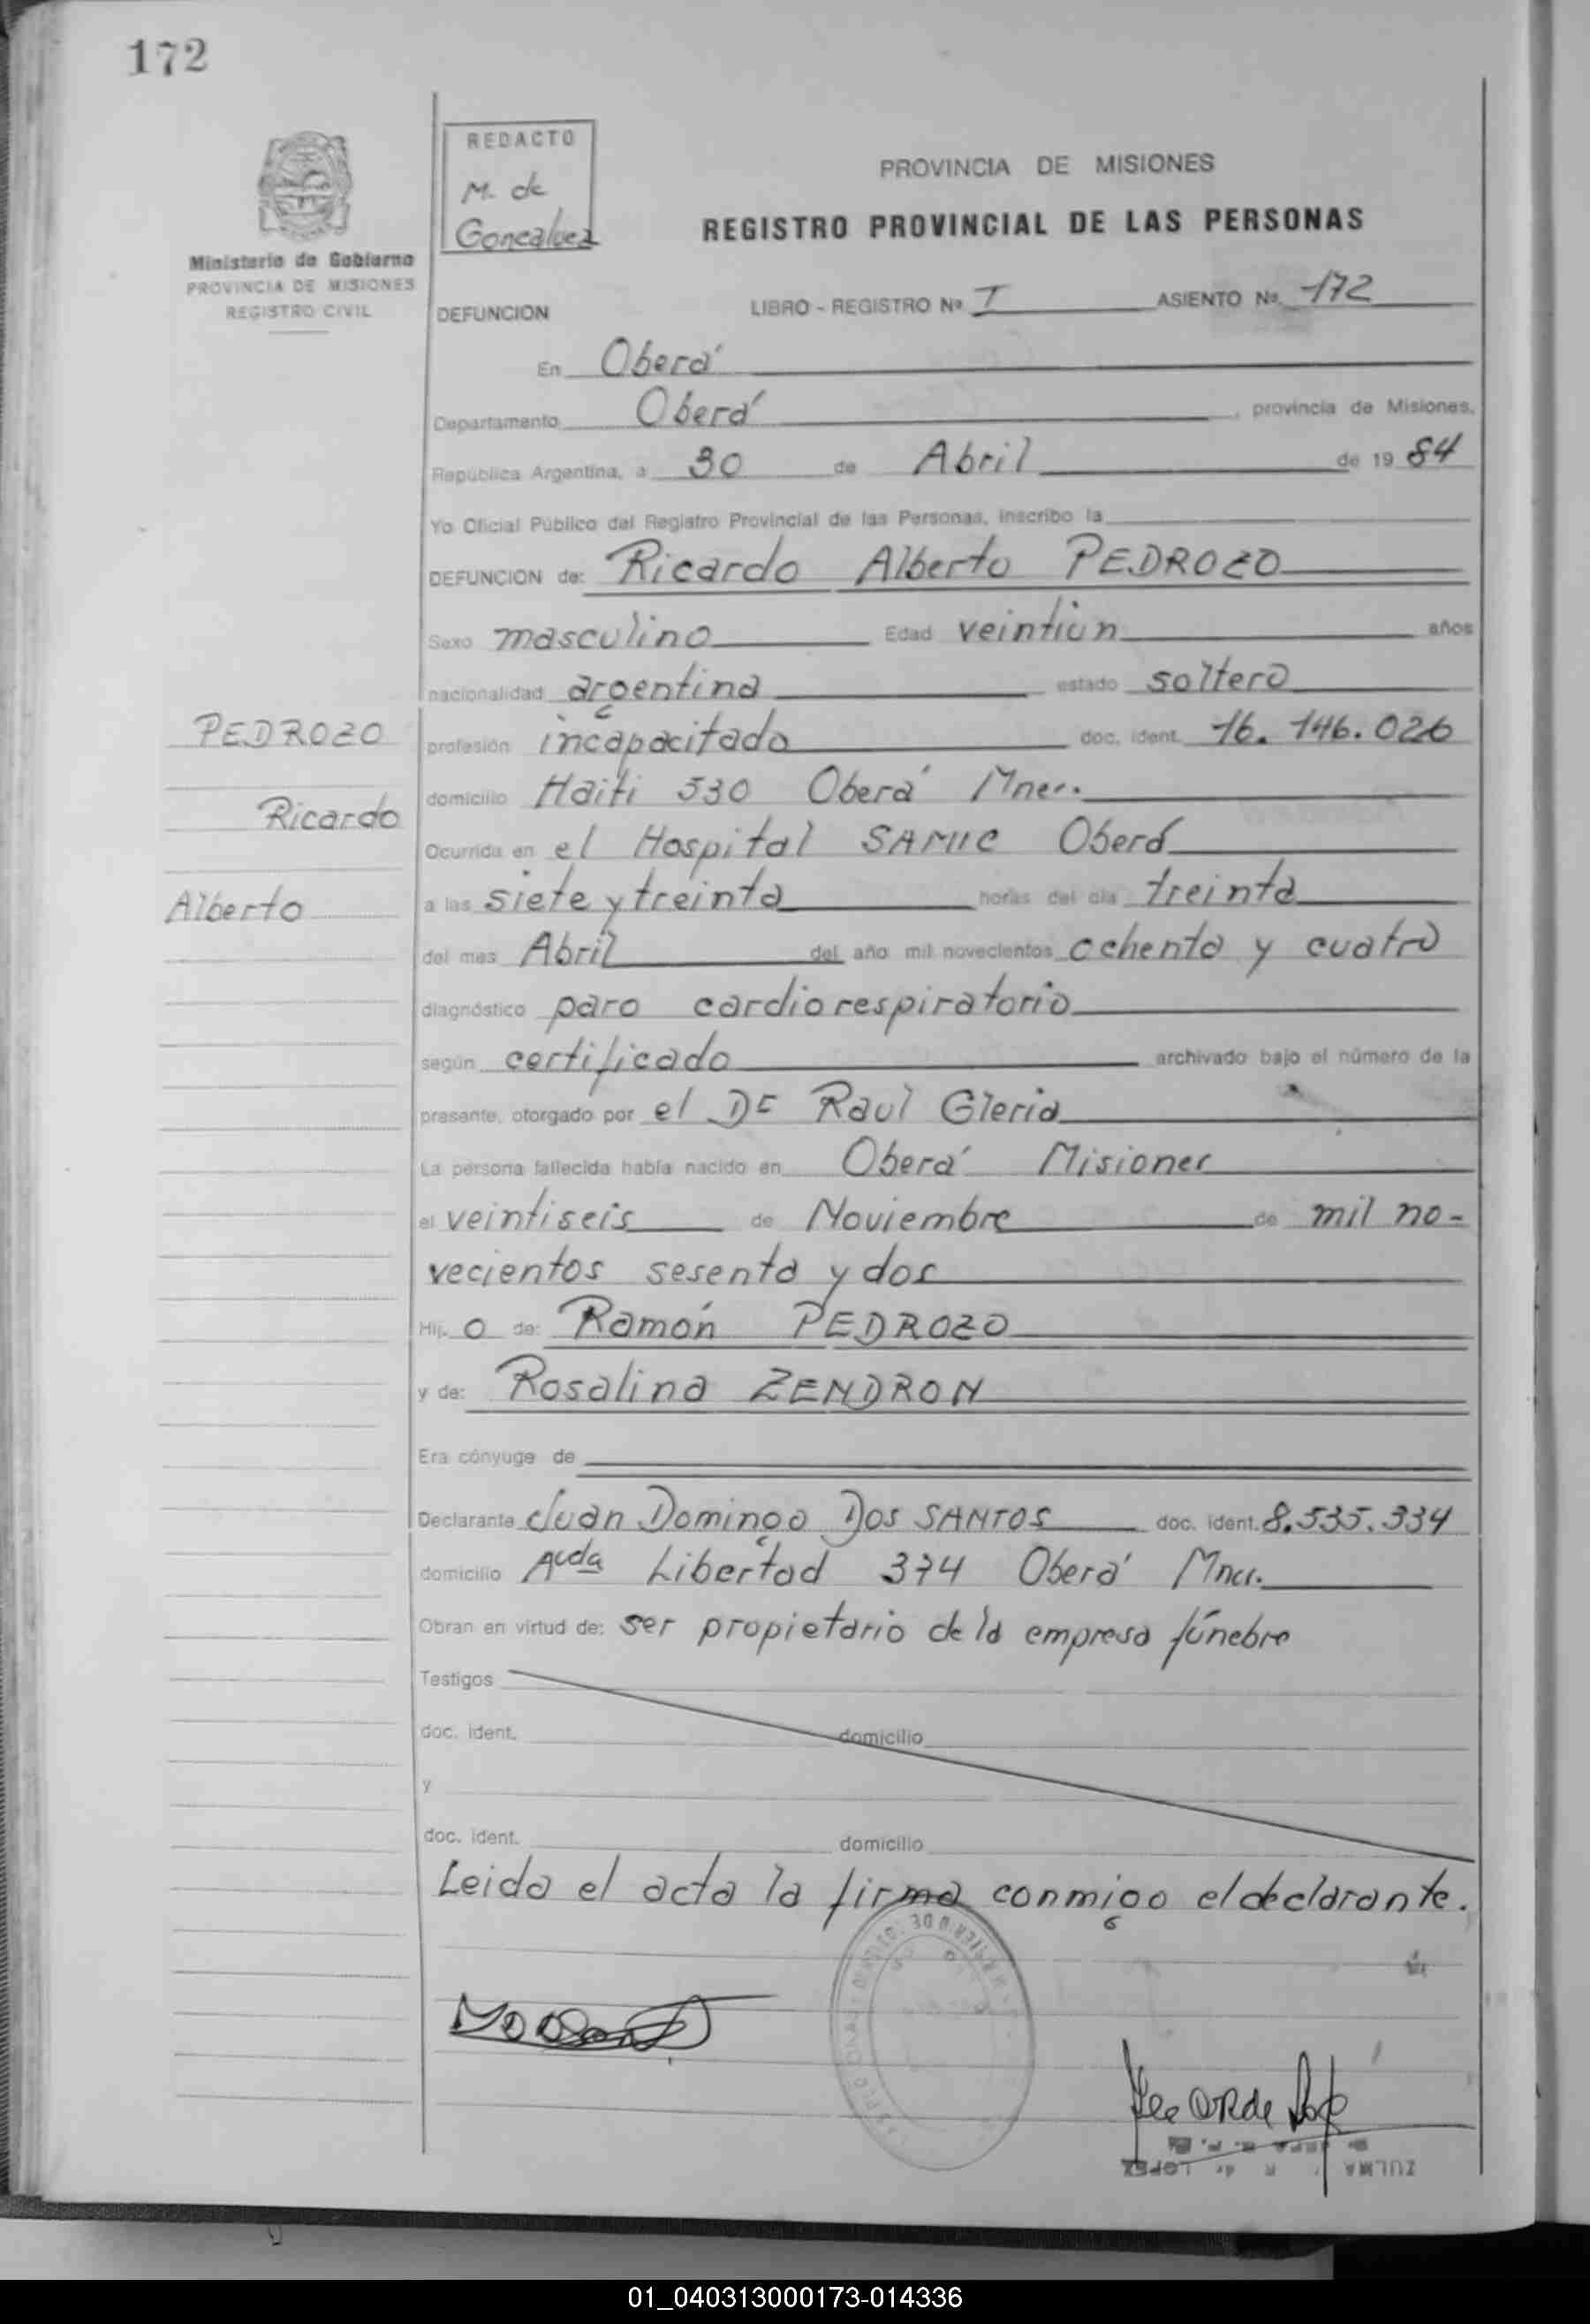 172
REDACTO
M. de
Goncalvez
Ministerio de Gobierno
PROVINCIA DE MISIONES
REGISTRO CIVIL
PROVINCIA DE MISIONES
REGISTRO PROVINCIAL DE LAS PERSONAS
DEFUNCION LIBRO - REGISTRO Nº I ASIENTO Nº 172
En Oberá
Departamento Oberá, provincia de Misiones,
República Argentina, a 30 de Abril de 1984
Yo Oficial Público del Registro Provincial de las Personas, inscribo la
DEFUNCION de: Ricardo Alberto PEDROZO
Sexo masculino Edad veintiún años
nacionalidad argentina estado soltero
PEDROZO
profesión incapacitado doc. ident. 16.146.026
domicilio Haiti 530 Oberá Mnes.
Ricardo
Ocurrida en el Hospital SAMIC Oberá
Alberto
a las siete y treinta horas del día treinta
del mes Abril del año mil novecientos ochenta y cuatro
diagnóstico paro cardiorespiratorio
según certificado archivado bajo el número de la
presente, otorgado por el Dr Raul Gleria
La persona fallecida había nacido en Oberá Misiones
el veintiseis de Noviembre de mil no-
vecientos sesenta y dos
Hij o de: Ramón PEDROZO
y de: Rosalina ZENDRON
Era cónyuge de
Declarante Juan Domingo Dos SANTOS doc. ident. 8.535.334
domicilio Avda Libertad 374 Oberá Mnes.
Obran en virtud de: ser propietario de la empresa fúnebre
Testigos
doc. ident. domicilio
y
doc. ident. domicilio
Leida el acta la firma conmigo el declarante.
ZULMA R de LOPEZ
01_040313000173-014336